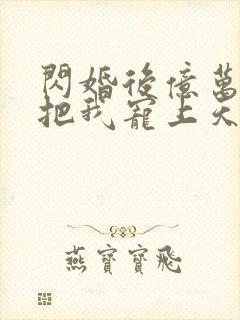 閃婚後億萬
把我寵上天
燕寶寶飛